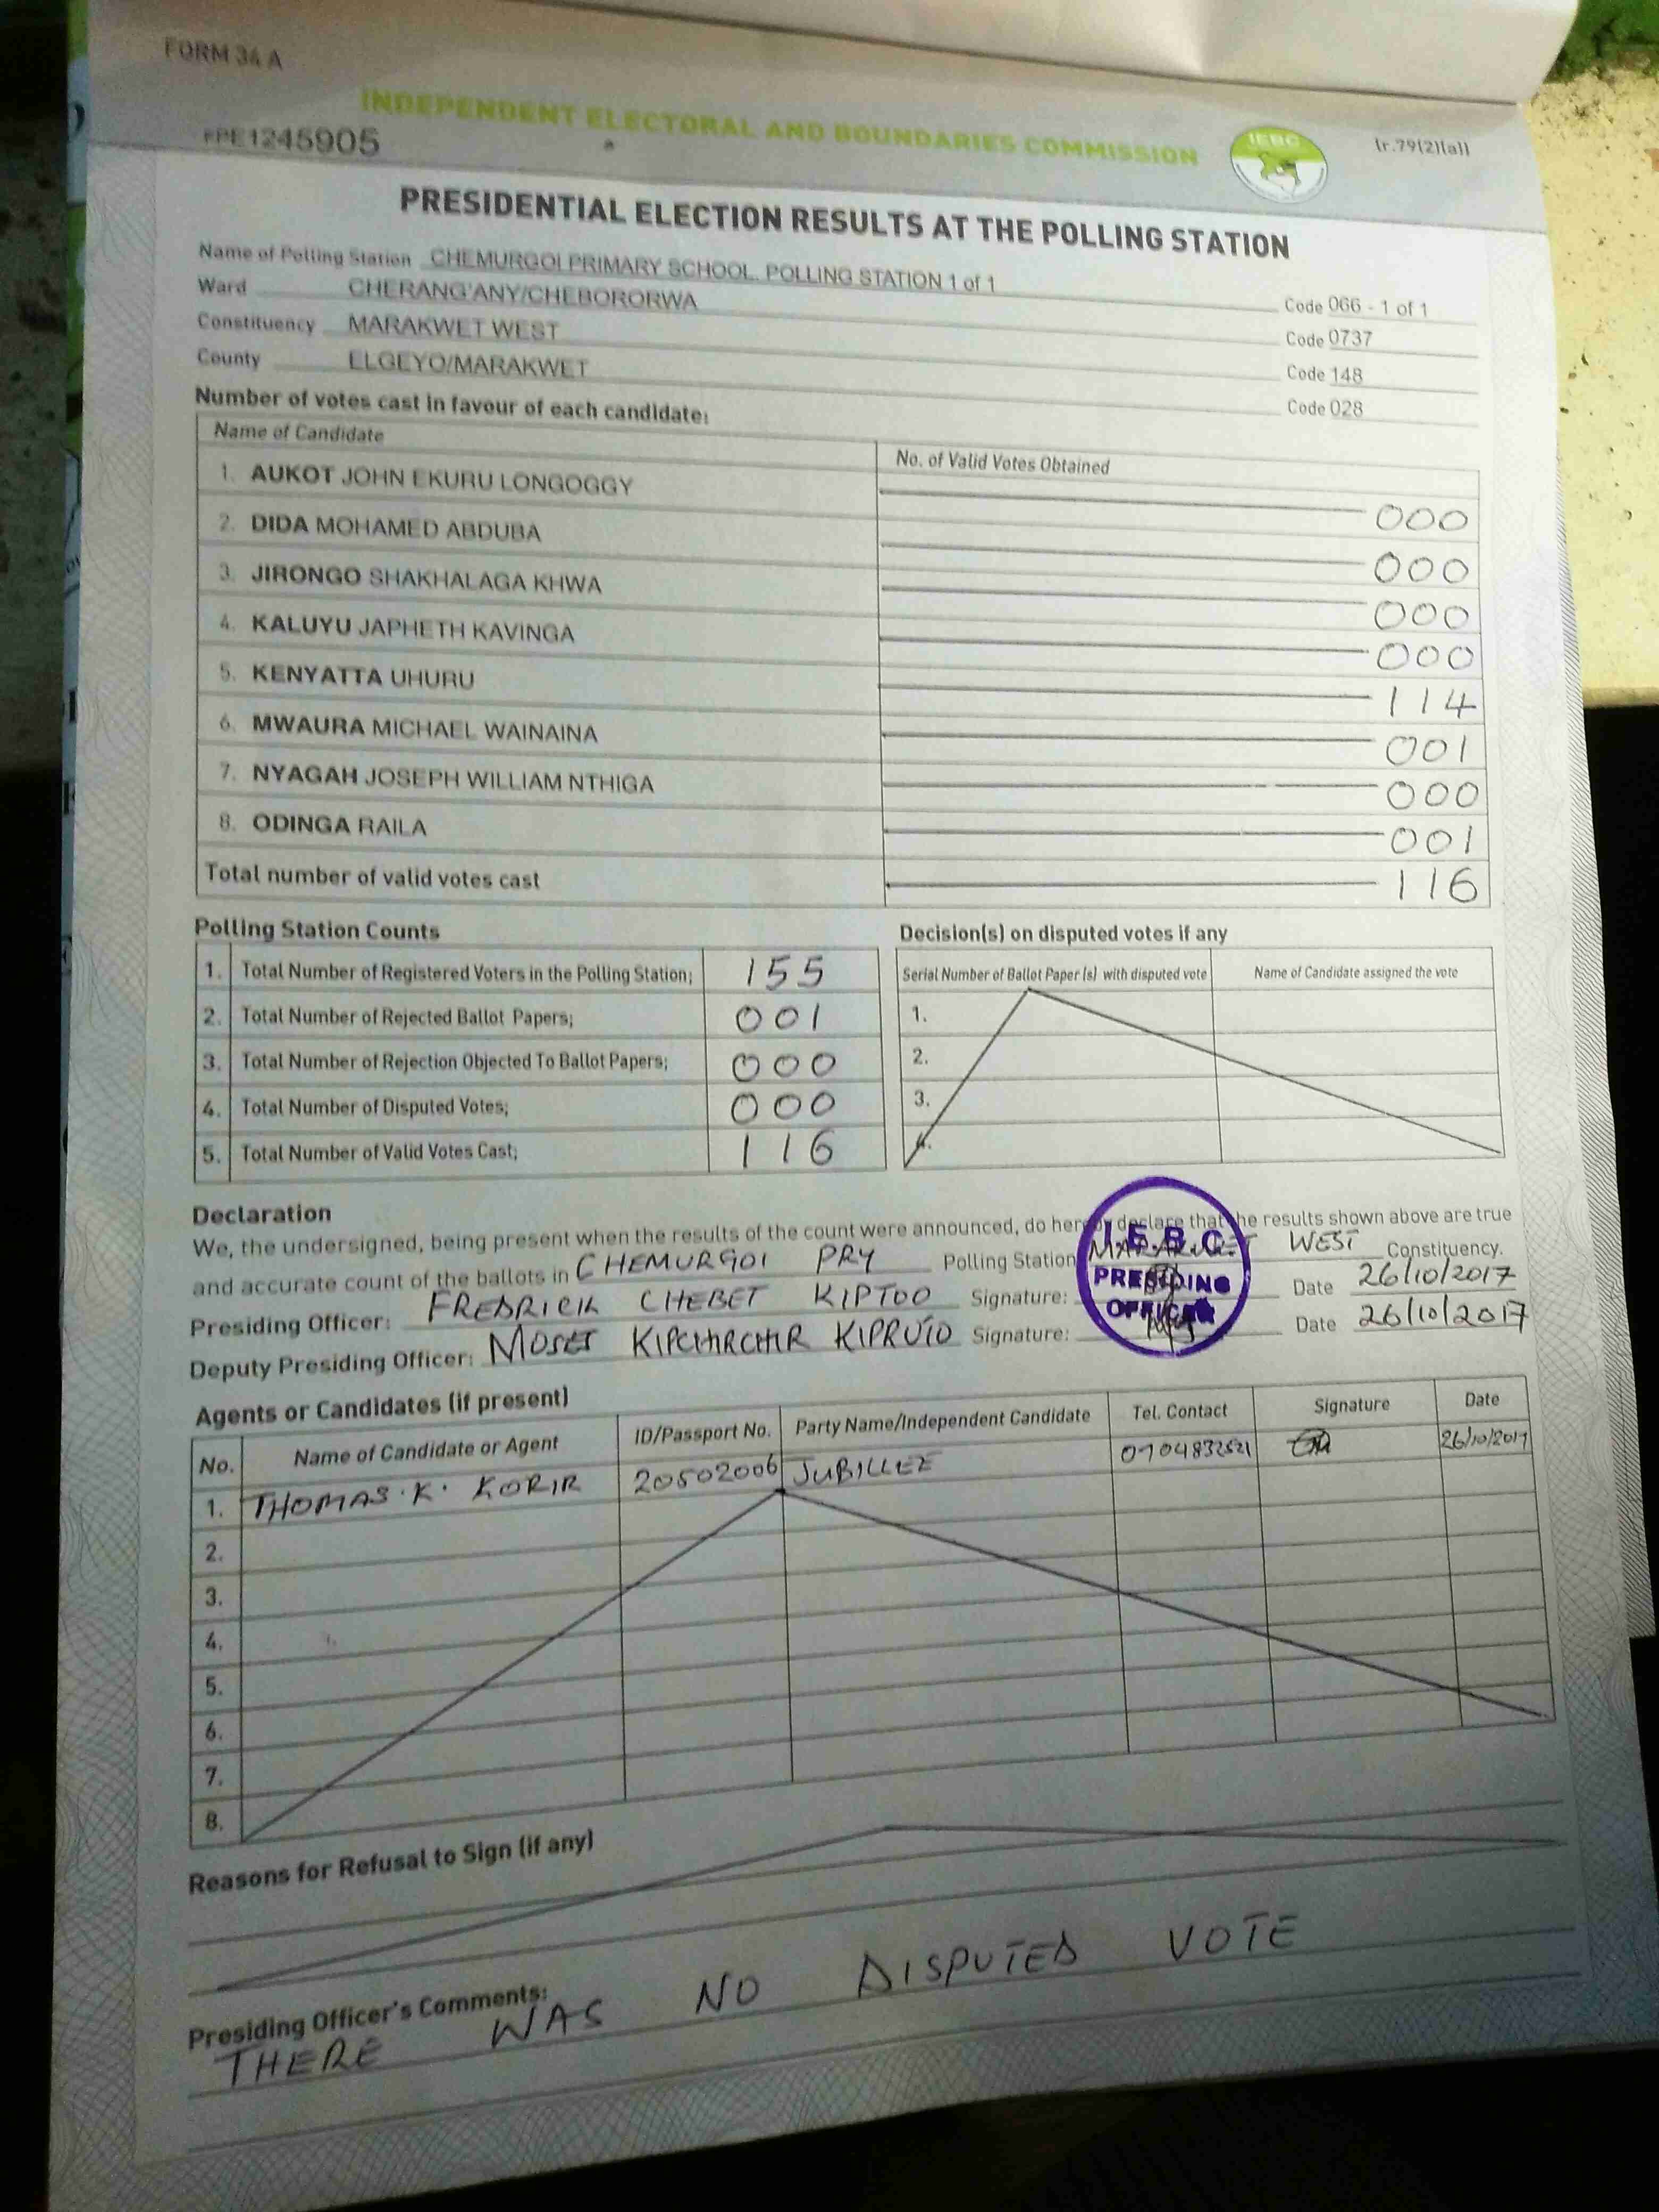 FORM 34 A
INDEPENDENT ELECTORAL AND BOUNDARIES COMMISSION
IEBC
(r.79(2)(a))
PE1245905
PRESIDENTIAL ELECTION RESULTS AT THE POLLING STATION
Name of Polling Station CHEMURGOI PRIMARY SCHOOL. POLLING STATION 1 of 1 Code 066 - 1 of 1
Ward CHERANG'ANY/CHEBORORWA Code 0737
Constituency MARAKWET WEST Code 148
County ELGEYO/MARAKWET Code 028
Number of votes cast in favour of each candidate:
Name of Candidate No. of Valid Votes Obtained
1. AUKOT JOHN EKURU LONGOGGY 000
2. DIDA MOHAMED ABDUBA 000
3. JIRONGO SHAKHALAGA KHWA 000
4. KALUYU JAPHETH KAVINGA 000
5. KENYATTA UHURU 114
6. MWAURA MICHAEL WAINAINA 001
7. NYAGAH JOSEPH WILLIAM NTHIGA 000
8. ODINGA RAILA 001
Total number of valid votes cast 116
Polling Station Counts
1. Total Number of Registered Voters in the Polling Station; 155
2. Total Number of Rejected Ballot Papers; 001
3. Total Number of Rejection Objected To Ballot Papers; 000
4. Total Number of Disputed Votes; 000
5. Total Number of Valid Votes Cast; 116
Decision(s) on disputed votes if any
Serial Number of Ballot Paper (s) with disputed vote Name of Candidate assigned the vote
1.
2.
3.
4.
Declaration
We, the undersigned, being present when the results of the count were announced, do hereby declare that the results shown above are true
and accurate count of the ballots in CHEMURGOI PRY Polling Station MARAKWET WEST Constituency.
Presiding Officer: FREDRICK CHEBET KIPTOO Signature: Date 26/10/2017
Deputy Presiding Officer: MOSES KIPCHIRCHIR KIPRUTO Signature: Date 26/10/2017
I.E.B.C
PRESIDING
OFFICER
Agents or Candidates (if present)
No. Name of Candidate or Agent ID/Passport No. Party Name/Independent Candidate Tel. Contact Signature Date
1. THOMAS. K. KORIR 20502006 JUBILLEE 0704832521 26/10/2017
2.
3.
4.
5.
6.
7.
8.
Reasons for Refusal to Sign (if any)
Presiding Officer's Comments:
THERE WAS NO DISPUTED VOTE